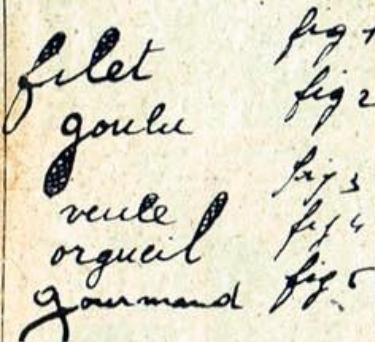 filet fig 1
goulu fig 2
veule fig 3
orgueil fig 4
gourmand fig 5